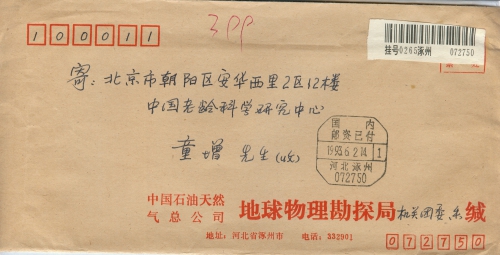 100011
3pp
挂号0265涿州 072750
寄:北京市朝阳区安华西里2区12楼
中国老龄科学研究中心
童增 先生(收)
国内
邮资已付
1993.6.2.14 1
河北涿州
072750
中国石油天然
气总公司
地球物理勘探局 机关团委 缄
地址:河北省涿州市 电话:332901
072750